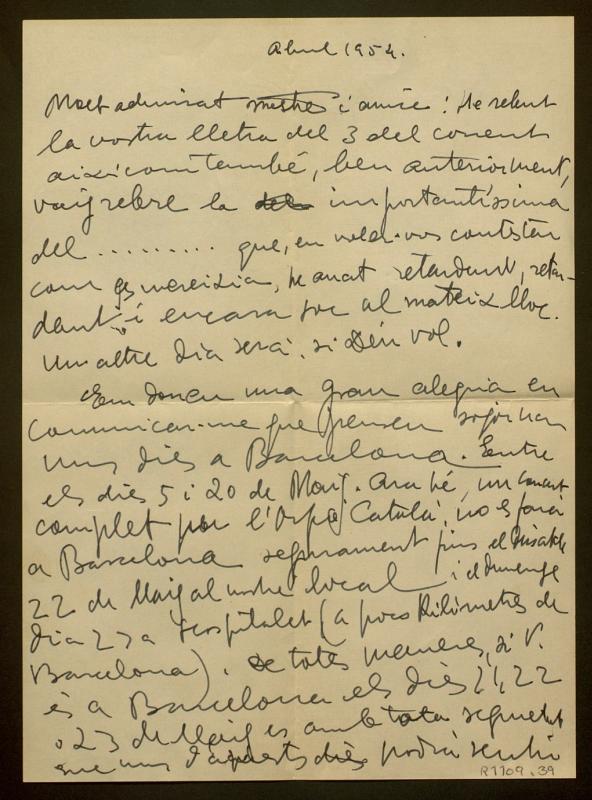 Abril 1954.
Molt admirat mestre i amic: He rebut
la vostra lletra del 3 del corrent
així com també, ben anteriorment,
vaig rebre la del importantíssima
del .......... que, en voler-vos contestar
com es mereixia, he anat retardant, retar-
dant i encara soc al mateix lloc.
Un altre dia serà, si Déu vol.
Em doneu una gran alegria en
comunicar-me que penseu sojornar
uns dies a Barcelona. Entre
els dies 5 i 20 de Maig. Ara bé, un concert
complet per l'Orfeó Català, no es farà
a Barcelona segurament fins el Dissabte
22 de Maig al nostre local i el diumenge
dia 23 a Hospitalet (a pocs kilòmetres de
Barcelona). De totes maneres, si V.
és a Barcelona els dies 21, 22
o 23 de Maig es amb tota seguretat
que uns d'aquests dies podrà sentir
R1109.39